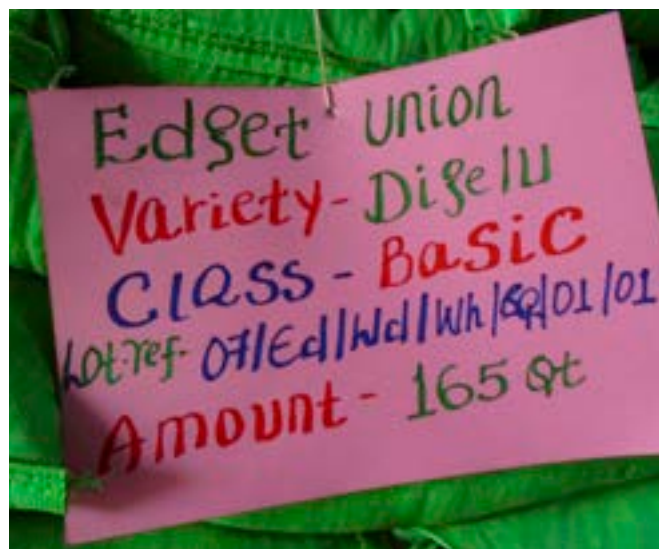 Edget Union
Variety- Digelu
Class - Basic
Lot.ref- 07/Ed/Wd/Wh/ /01/01
Amount - 165 Qt